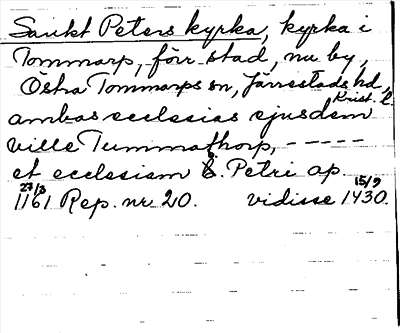 Sankt Peters kyrka, kyrka i
Tommarp, förr stad, nu by,
Östra Tommarps sn, Järrestads hd,
Krist. l.
ambas ecclesias ejusdem
ville Tummathorp, -----
et ecclesiam b. Petri ap.
27/3 15/9
1161 Rep. nr 20. vidisse 1430.